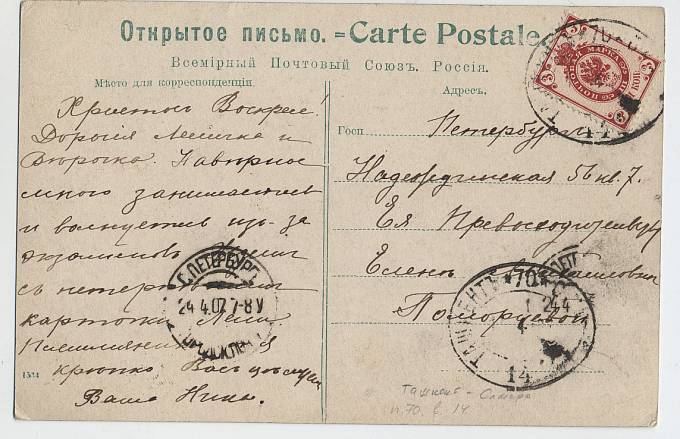 Открытое письмо. = Carte Postale.
Всемірный Почтовый Союзъ. Россія.
Мѣсто для корреспонденціи
Христосъ Воскресе!
Дорогія и
Вѣрочка. Навѣрное
много занимаетесь
и волнуетесь изъ-за
экзаменовъ.
съ нетерпѣніемъ
карточки
крѣпко Васъ цѣлуетъ
Ваша Нина.
1534
Адресъ.
Госп. Петербургъ
Надеждинская 56 кв. 7.
Ея Превосходительству
Еленѣ
Поморцевой
МАРКА
3
С.ПЕТЕРБУРГЪ
24.4.07 7-8 V
ТАШКЕНТЪ *70*
14
Ташкент - Самара
п. 70. в. 14